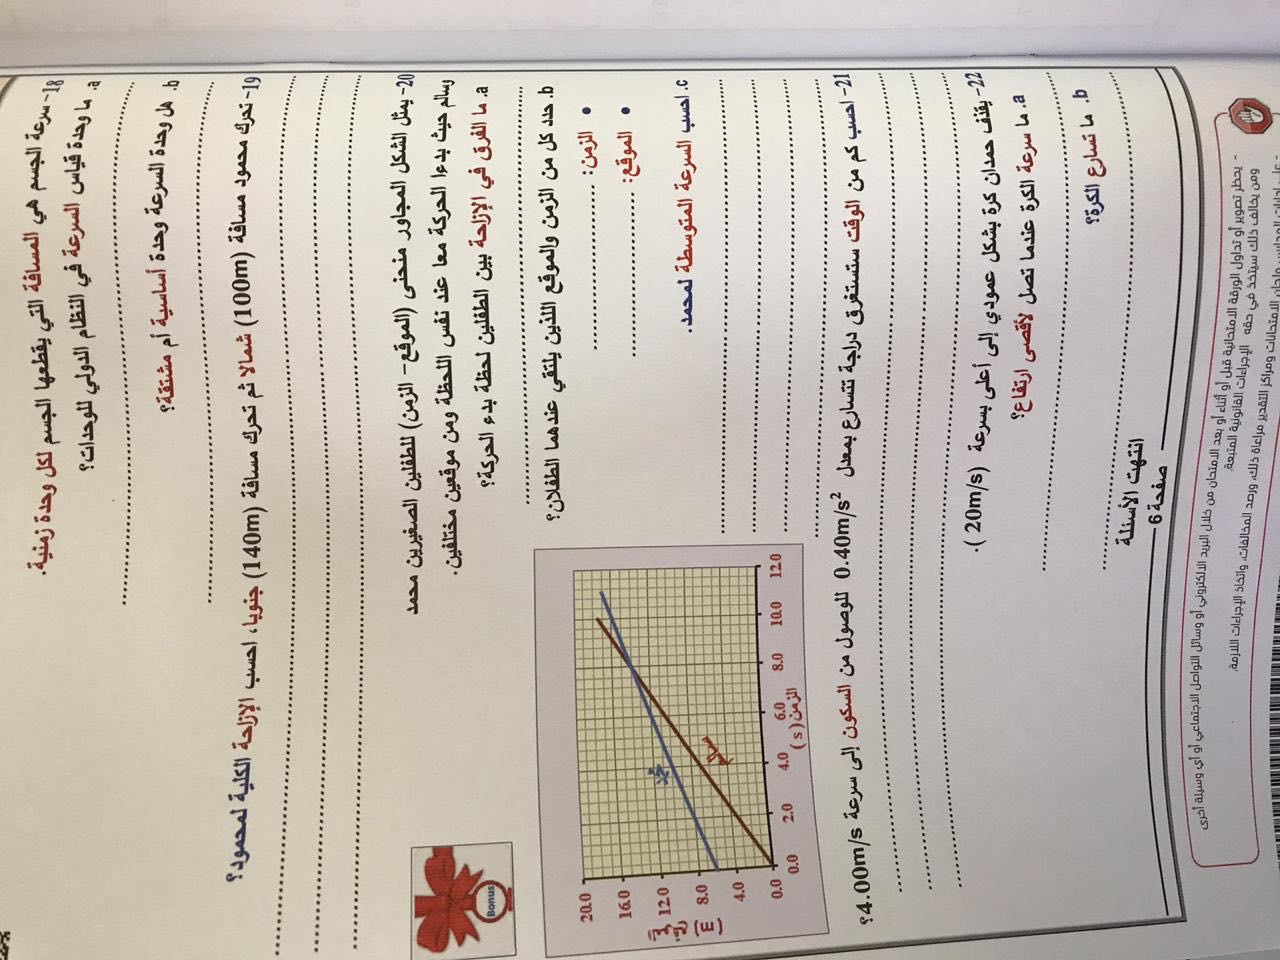 18- سرعة الجسم هي المسافة التي يقطعها الجسم لكل وحدة زمنية.
a. ما وحدة قياس السرعة في النظام الدولي للوحدات؟
b. هل وحدة السرعة وحدة أساسية أم مشتقة؟
19- تحرك محمود مسافة (100m) شمالا ثم تحرك مسافة (140m) جنوبا، احسب الإزاحة الكلية لمحمود؟
20- يمثل الشكل المجاور منحنى (الموقع- الزمن) للطفلين الصغيرين محمد
وسالم حيث بدءا الحركة معا عند نفس اللحظة ومن موقعين مختلفين.
a. ما الفرق في الإزاحة بين الطفلين لحظة بدء الحركة؟
b. حدد كل من الزمن والموقع اللذين يلتقي عندهما الطفلان؟
• الزمن:
• الموقع:
c. احسب السرعة المتوسطة لمحمد.
Bonus
20.0
16.0
12.0
8.0
4.0
0.0
(m)
محمد
سالم
0.0 2.0 4.0 6.0 8.0 10.0 12.0
الزمن (s)
21- احسب كم من الوقت ستستغرق دراجة تتسارع بمعدل 0.40m/s² للوصول من السكون إلى سرعة 4.00m/s؟
22- يقذف حمدان كرة بشكل عمودي إلى أعلى بسرعة (20m/s).
a. ما سرعة الكرة عندما تصل لأقصى ارتفاع؟
b. ما تسارع الكرة؟
انتهت الأسئلة
صفحة 6
- يحظر تصوير أو تداول الورقة الامتحانية قبل أو أثناء أو بعد الامتحان من خلال البريد الالكتروني أو وسائل التواصل الاجتماعي أو أي وسيلة أخرى
ومن يخالف ذلك سيتخذ في حقه الإجراءات القانونية المتبعة.
مراعاة ذلك، ورصد المخالفات، واتخاذ الإجراءات اللازمة.